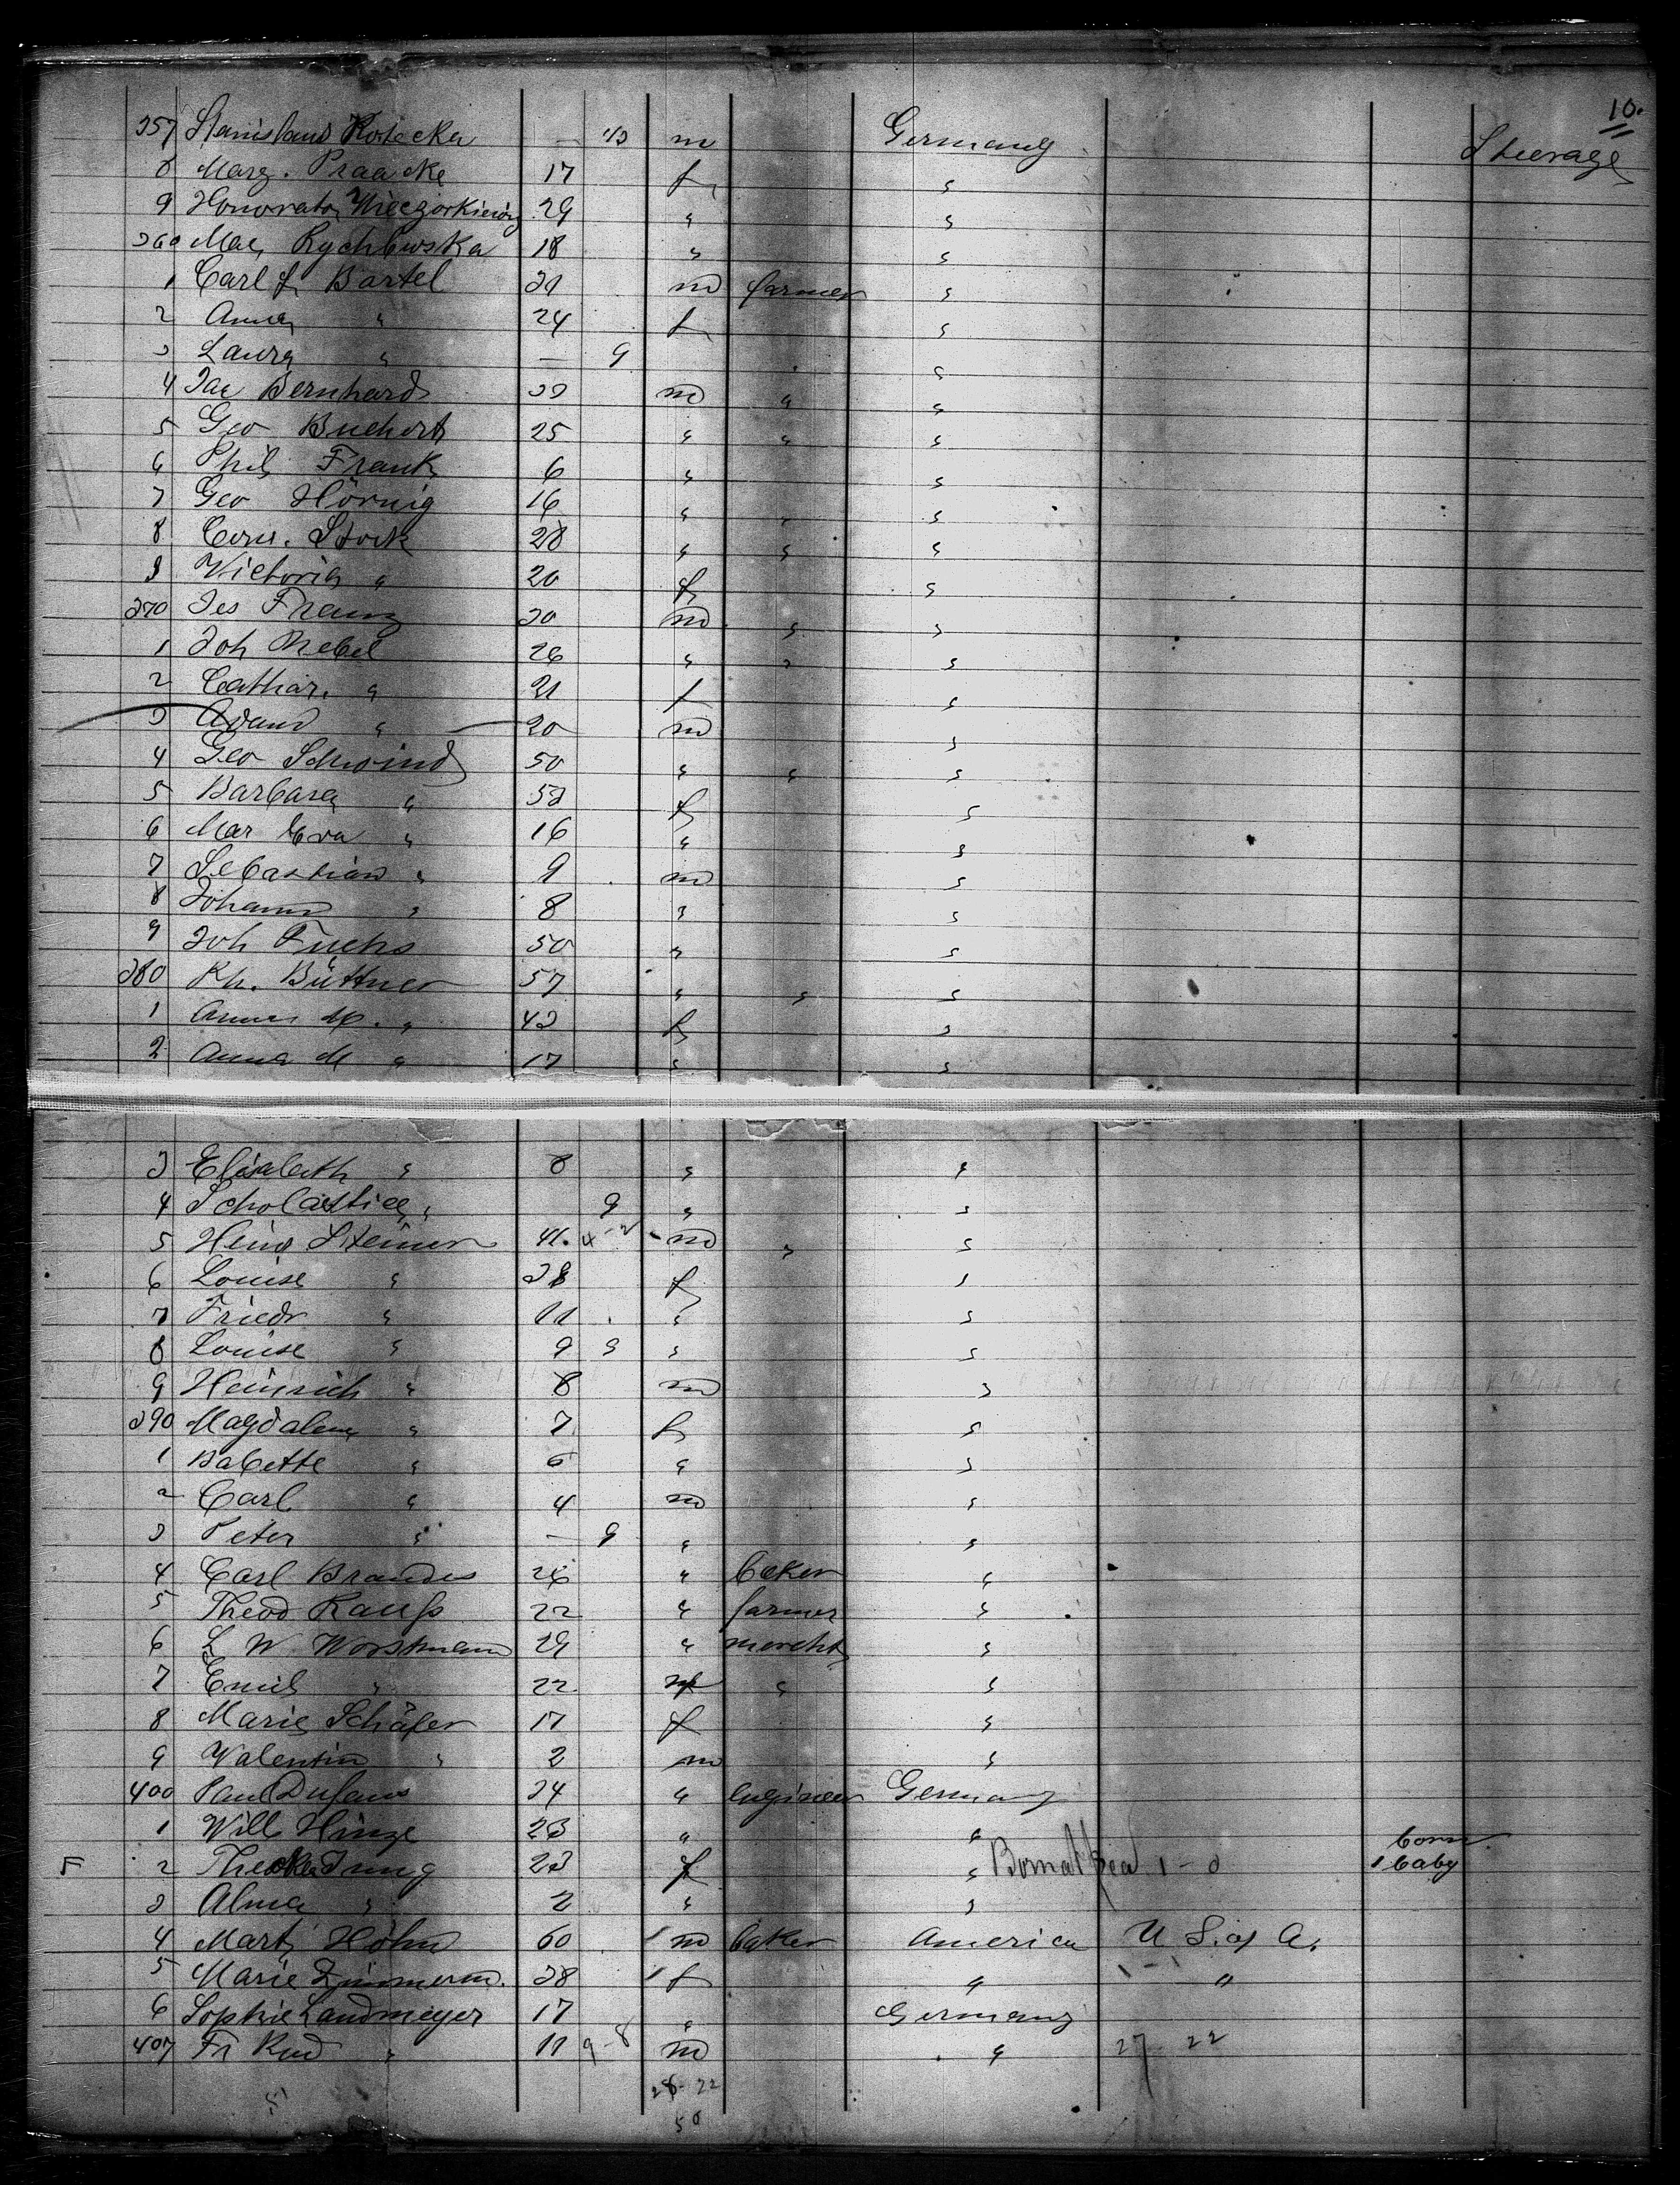 10.
357 Stanislaus Kostecka — 1/2 m Germany Steerage
8 Marg. Praacke 17 f "
9 Honorata 29 " "
360 Mar. Rychlewska 18 " "
1 Carl F. Bartel 29 m farmer "
2 Anna " 24 f "
3 Laura " — 9 "
4 Jac Bernhard 33 m " "
5 Geo Buchert 25 " " "
6 Phil Frank 6 " "
7 Geo Hörnig 16 " " "
8 Corn. Stock 28 " " "
9 Victoria " 20 f "
370 Jes Franz 30 m " "
1 Joh Nebel 26 " " "
2 Cathar. " 21 f "
3 Adam " 20 m "
4 Geo Schwind 50 " " "
5 Barbara " 53 f "
6 Mar Eva " 16 " "
7 Sebastian " 9 m "
8 Johann " 8 " "
9 Joh Fuchs 50 " "
380 Kh. Büttner 57 " " "
1 Anna M. " 43 f "
2 Anna M " 17 " "
3 Elisabeth " 8 " "
4 Scholastica " 9 " "
5 Heinr Steiner 41. 4-2 m " "
6 Louise " 38 f "
7 Friedr " 11 " "
8 Louise " 9 9 " "
9 Heinrich " 8 m "
390 Magdalena " 7 f "
1 Babette " 6 " "
2 Carl " 4 m "
3 Peter " — 9 " "
4 Carl Brandes 26 " baker "
5 Theod Raufs 22 " farmer "
6 L W Worstmann 29 " mercht "
7 Emil " 22 m " "
8 Marie Schäfer 17 f "
9 Valentin " 2 m "
400 Paul 34 " engineer Germany
1 Will Hinze 23 " " born
F 2 Jung 23 f " Born at Sea 1-0 1 baby
3 Alma " 2 " "
4 Mart. Höhn 60 m baker America U S. of A.
5 Marie Zimmerm. 38 f " 1-1 "
6 Sophie Landmeyer 17 " Germany
407 Fr Rud " 11 9-8 m " 27 22
28-22
50